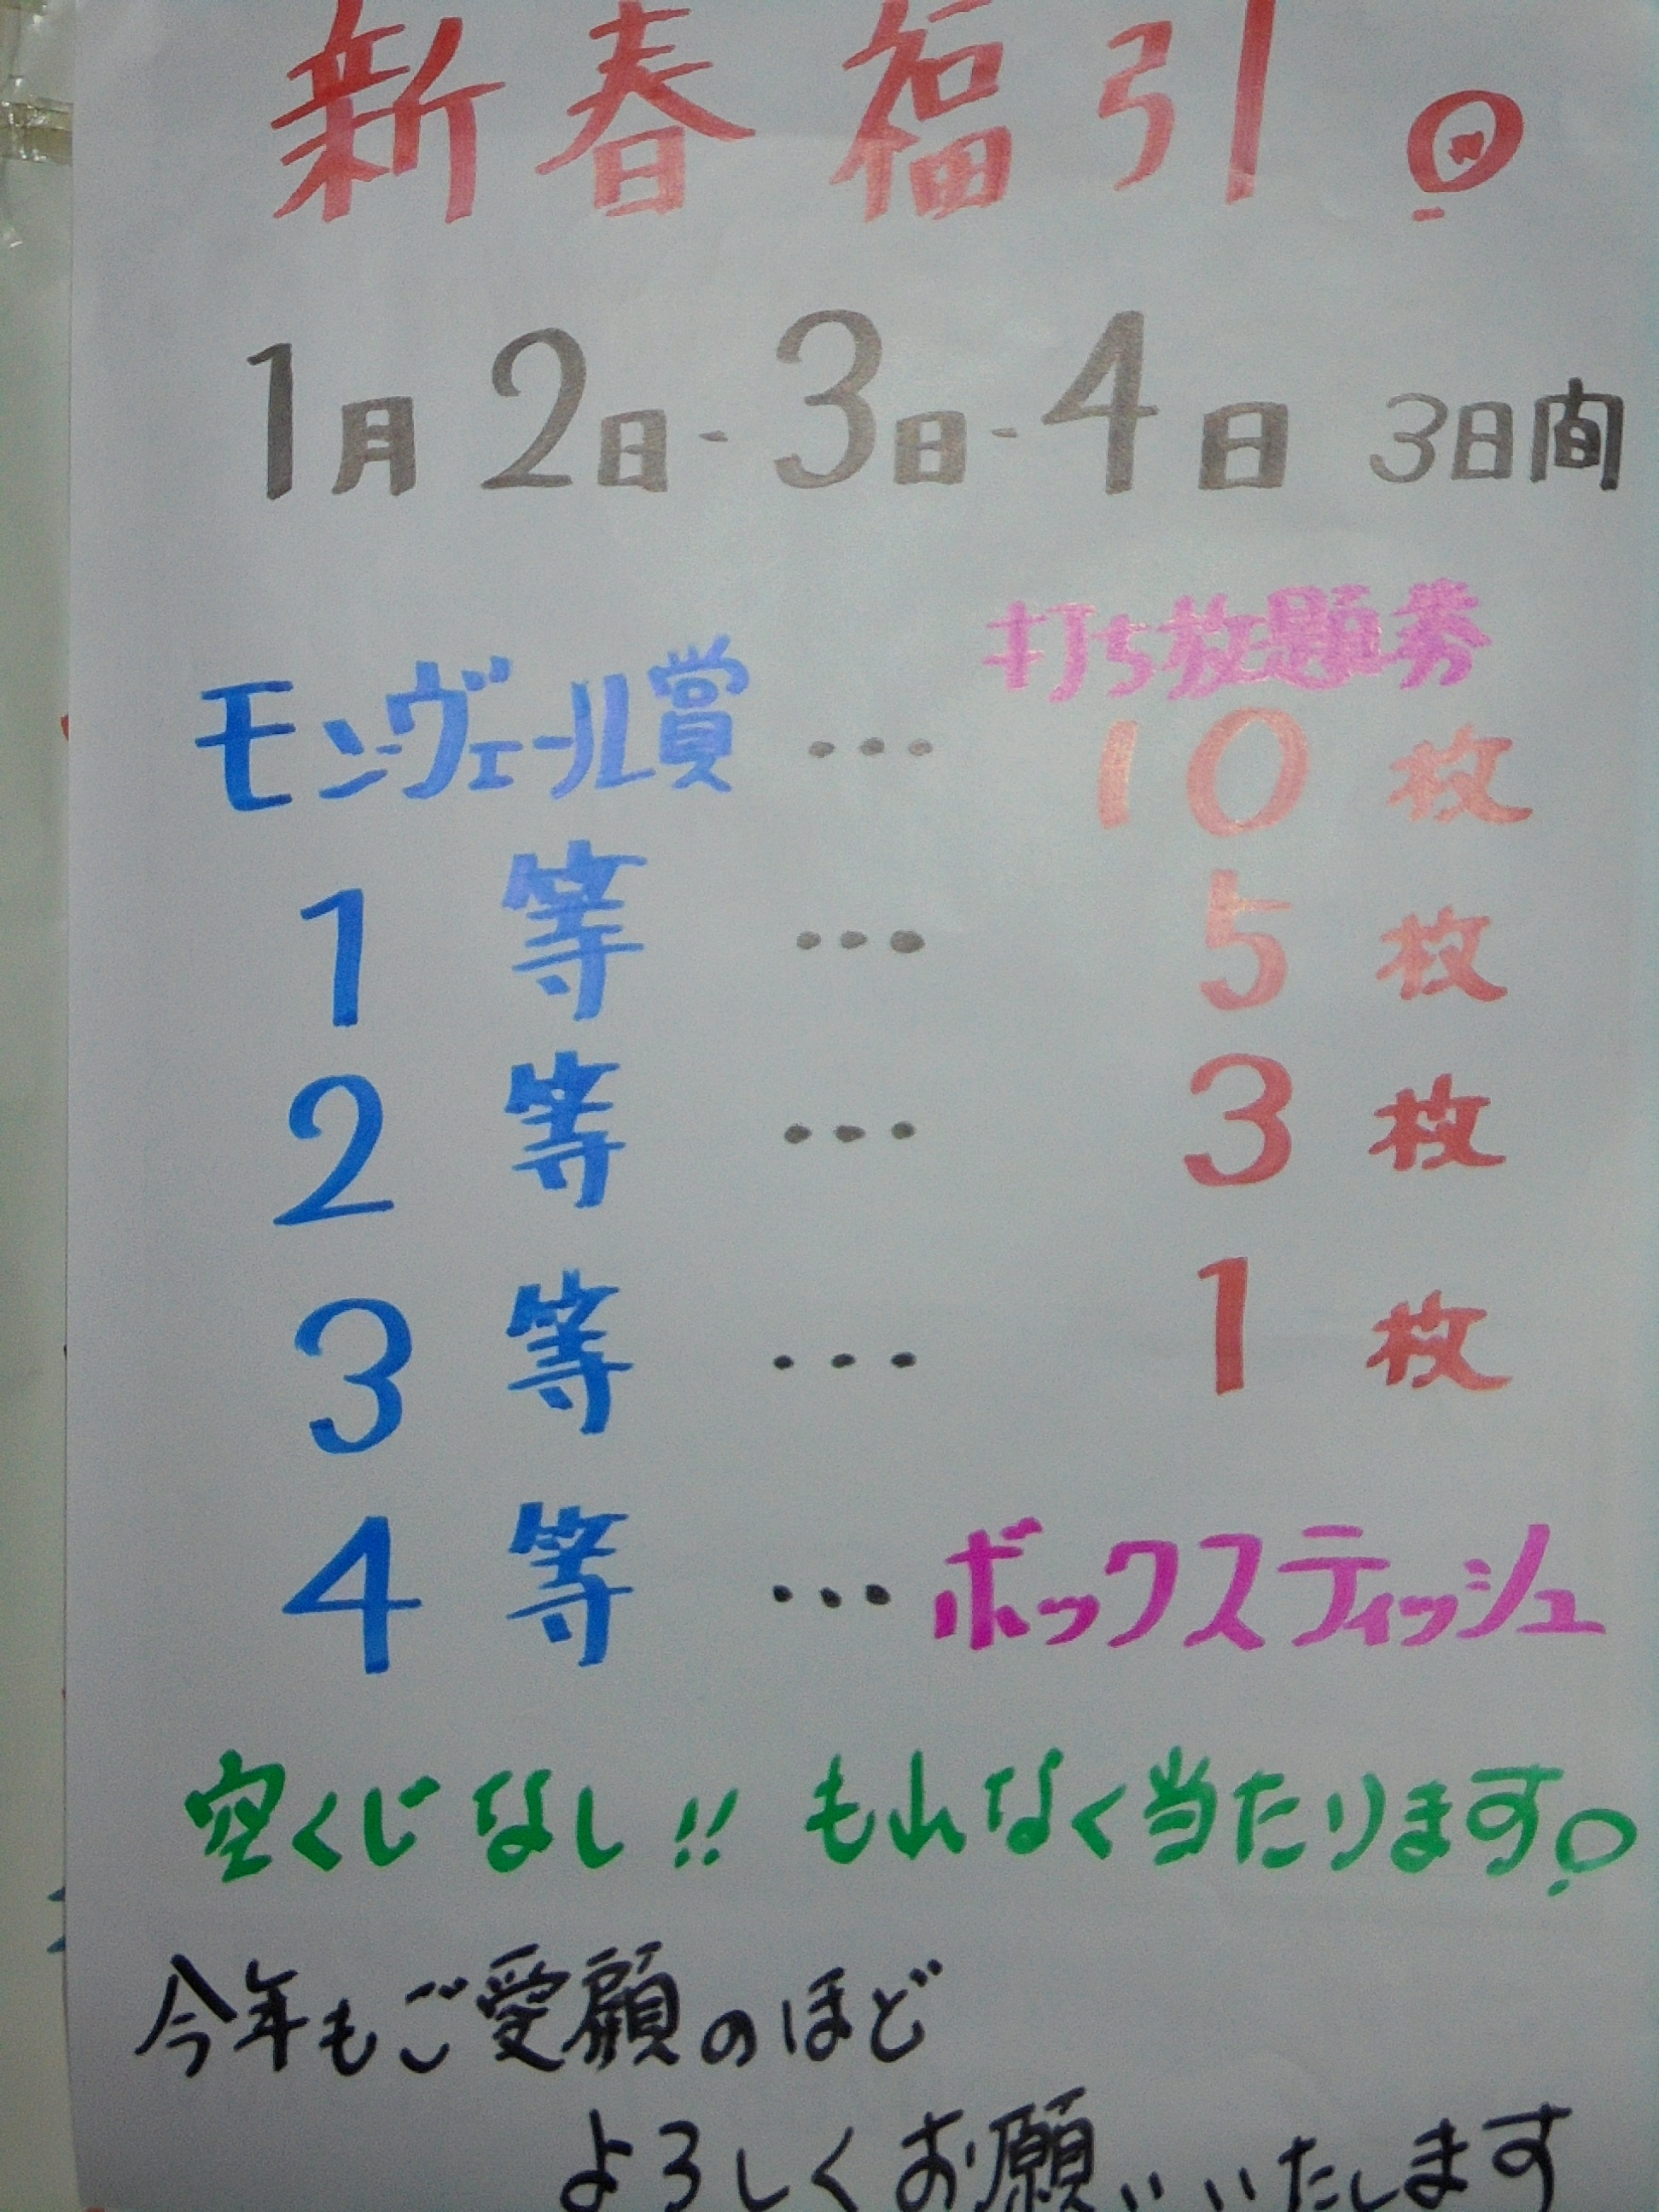 新春福引!
1月2日-3日-4日 3日間
打ち放題券
モンヴェール賞 … 10枚
1等 … 5枚
2等 … 3枚
3等 … 1枚
4等 … ボックスティッシュ
空くじなし!! もれなく当たります!
今年もご愛顧のほど
よろしくお願いいたします